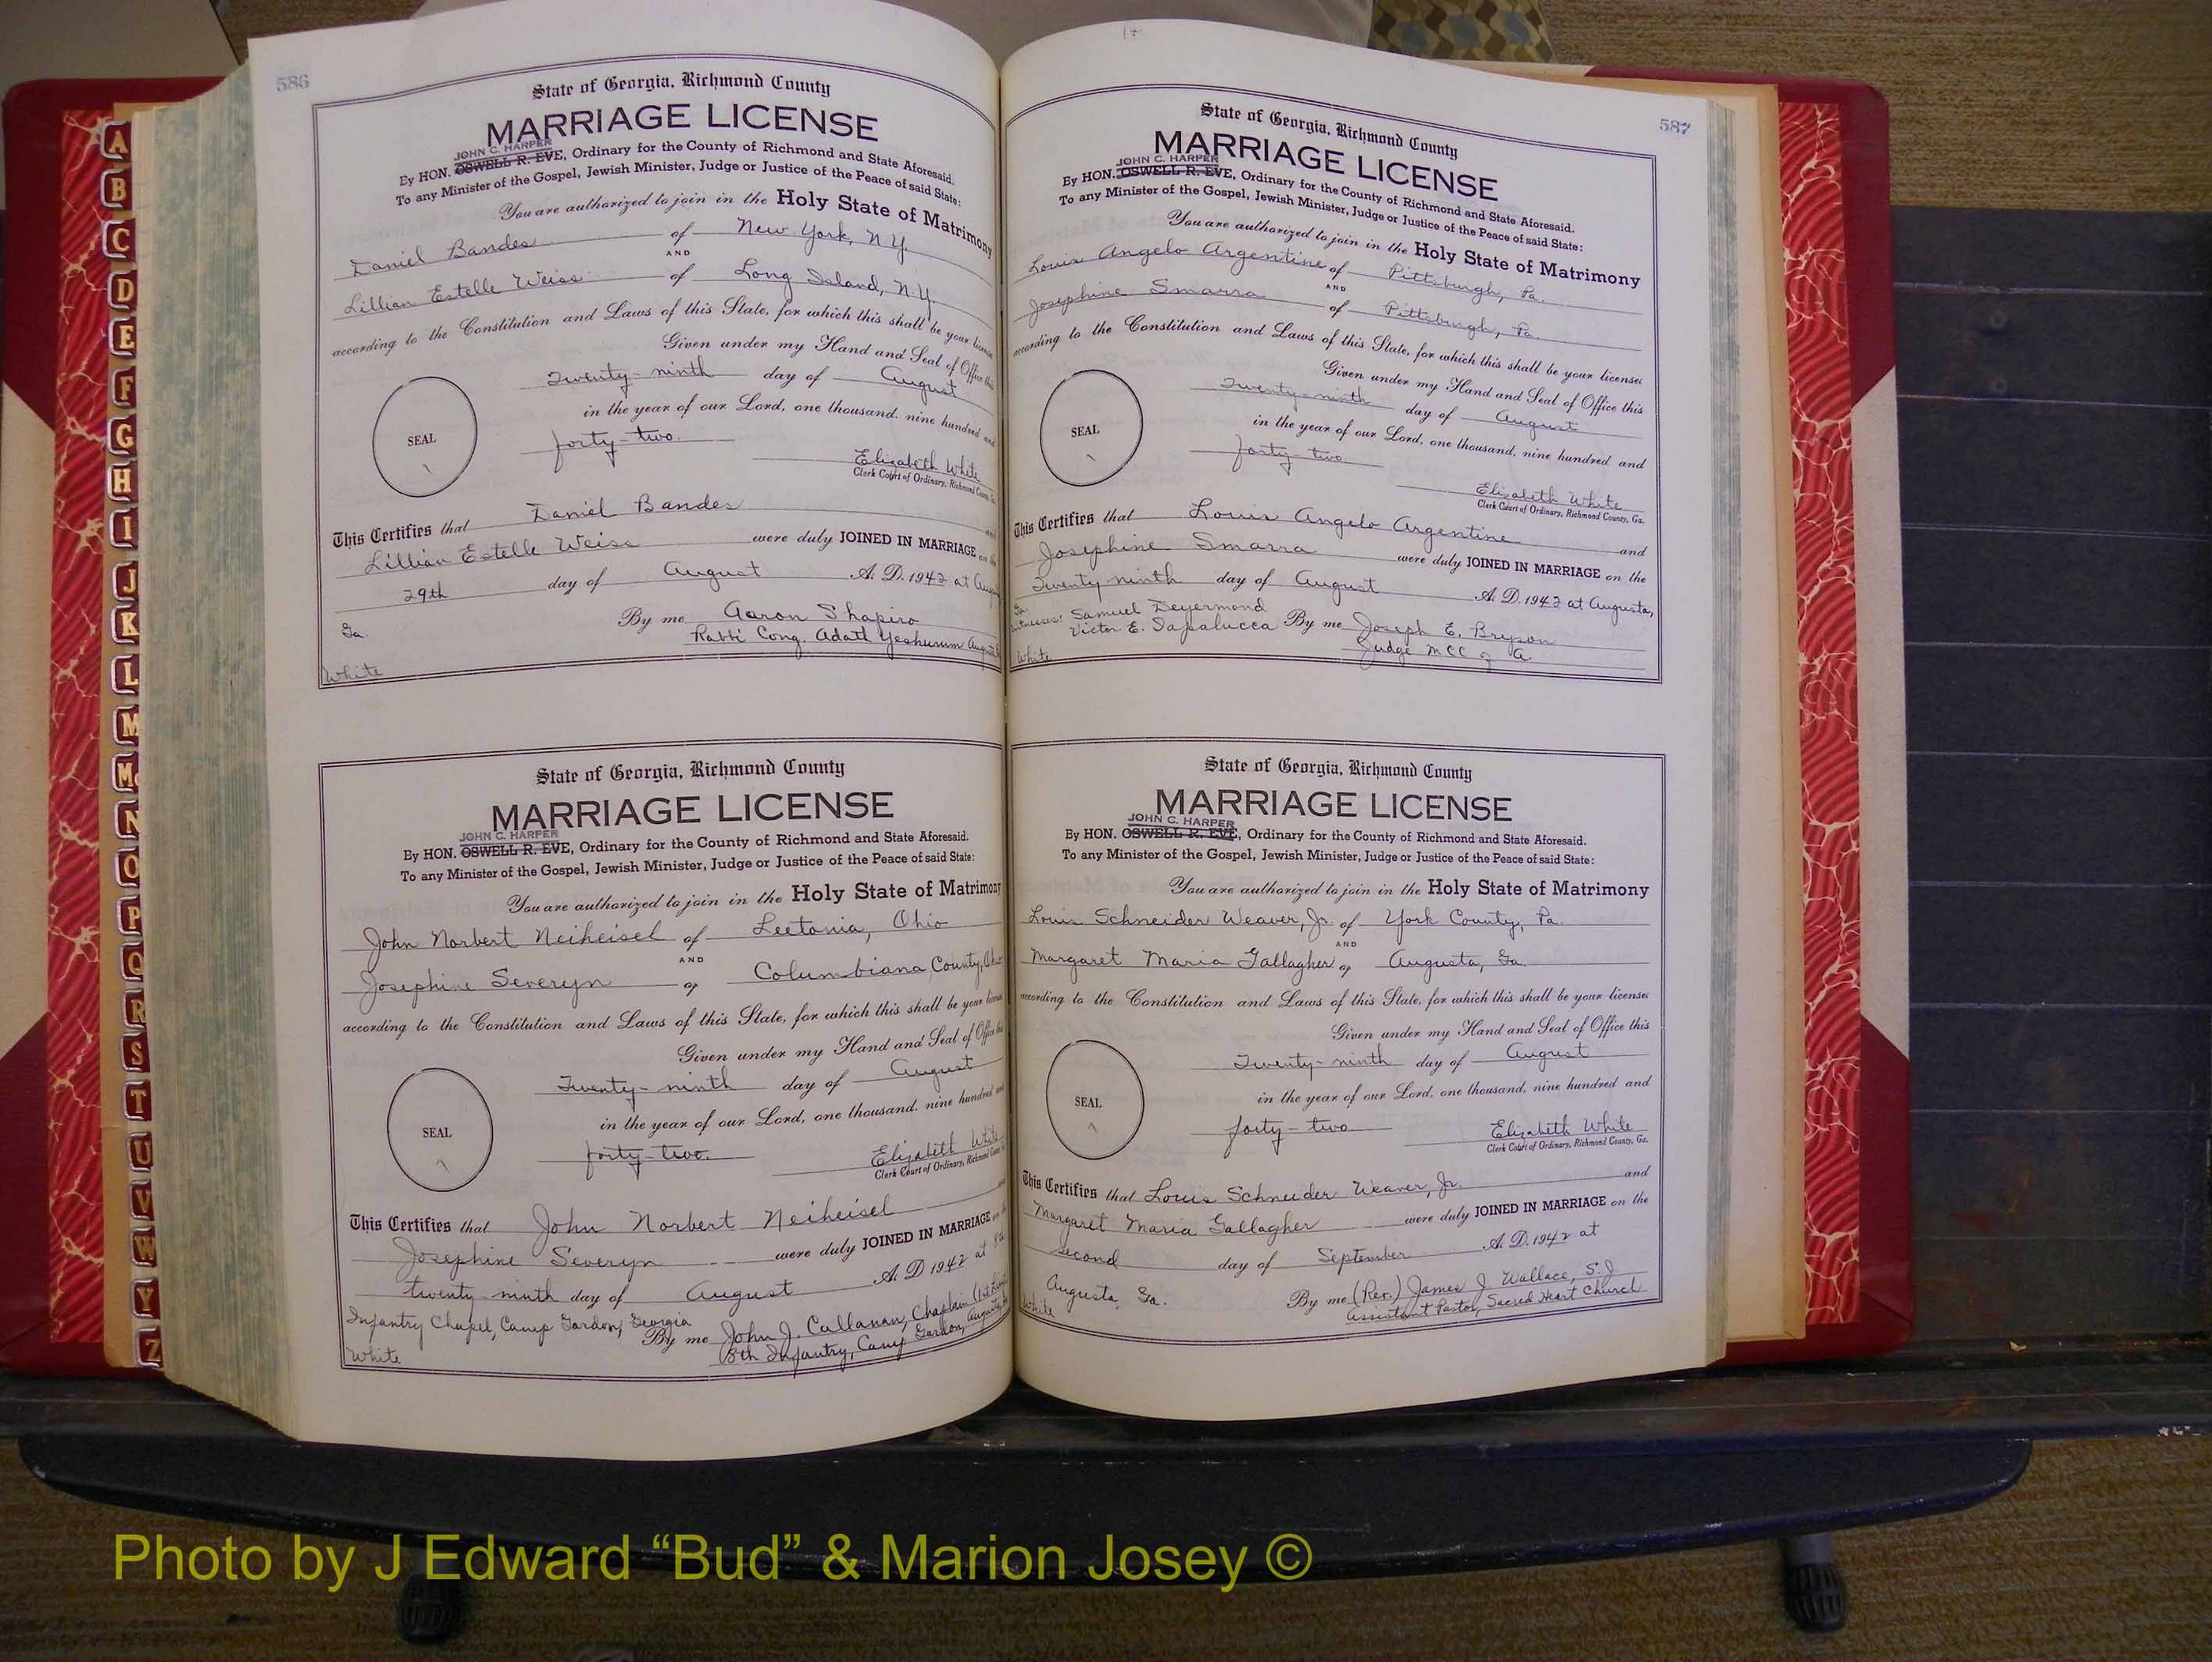 586
State of Georgia, Richmond County
MARRIAGE LICENSE
JOHN C. HARPER
By HON. OSWELL R. EVE, Ordinary for the County of Richmond and State Aforesaid.
To any Minister of the Gospel, Jewish Minister, Judge or Justice of the Peace of said State:
You are authorized to join in the Holy State of Matrimony
Daniel Bandes of New York, N.Y.
AND
Lillian Estelle Weiss of Long Island, N.Y.
according to the Constitution and Laws of this State, for which this shall be your license
Given under my Hand and Seal of Office this
Twenty-ninth day of August
in the year of our Lord, one thousand, nine hundred and
SEAL
forty-two.
Elizabeth White
Clerk Court of Ordinary, Richmond County,
This Certifies that Daniel Bandes and
Lillian Estelle Weiss were duly JOINED IN MARRIAGE on the
29th day of August A. D. 1942 at
Ga. By me Aaron Shapiro
Rabbi Cong. Adath Yeshurun
White
State of Georgia, Richmond County
MARRIAGE LICENSE
JOHN C. HARPER
By HON. OSWELL R. EVE, Ordinary for the County of Richmond and State Aforesaid.
To any Minister of the Gospel, Jewish Minister, Judge or Justice of the Peace of said State:
You are authorized to join in the Holy State of Matrimony
John Norbert Neiheisel of Leetonia, Ohio
AND
Josephine Severyn of Columbiana County,
according to the Constitution and Laws of this State, for which this shall be your license
Given under my Hand and Seal of Office this
Twenty-ninth day of August
in the year of our Lord, one thousand, nine hundred and
SEAL
forty-two.
Elizabeth White
Clerk Court of Ordinary, Richmond County
This Certifies that John Norbert Neiheisel
Josephine Severyn were duly JOINED IN MARRIAGE on
twenty ninth day of August A. D 1942 at
Infantry Chapel, Camp Gordon, Georgia
By me John J. Callanan, Chaplain (1st
8th Infantry, Camp Gordon,
White
587
State of Georgia, Richmond County
MARRIAGE LICENSE
JOHN C. HARPER
By HON. OSWELL R. EVE, Ordinary for the County of Richmond and State Aforesaid.
To any Minister of the Gospel, Jewish Minister, Judge or Justice of the Peace of said State:
You are authorized to join in the Holy State of Matrimony
Louis Angelo Argentine of Pittsburgh, Pa.
AND
Josephine Smarra of Pittsburgh, Pa.
according to the Constitution and Laws of this State, for which this shall be your license
Given under my Hand and Seal of Office this
Twenty-ninth day of August
in the year of our Lord, one thousand, nine hundred and
SEAL
forty-two
Elizabeth White
Clerk Court of Ordinary, Richmond County, Ga.
This Certifies that Louis Angelo Argentine and
Josephine Smarra were duly JOINED IN MARRIAGE on the
Twenty ninth day of August A. D. 1942 at Augusta,
Ga.
Witnesses: Samuel Deyermond
Victor E. Sapalucca By me Joseph E. Bryson
Judge MCC of A.
White
State of Georgia, Richmond County
MARRIAGE LICENSE
JOHN C. HARPER
By HON. OSWELL R. EVE, Ordinary for the County of Richmond and State Aforesaid.
To any Minister of the Gospel, Jewish Minister, Judge or Justice of the Peace of said State:
You are authorized to join in the Holy State of Matrimony
Louis Schneider Weaver, Jr. of York County, Pa.
AND
Margaret Maria Gallagher of Augusta, Ga.
according to the Constitution and Laws of this State, for which this shall be your license
Given under my Hand and Seal of Office this
Twenty-ninth day of August
in the year of our Lord, one thousand, nine hundred and
SEAL
forty-two
Elizabeth White
Clerk Court of Ordinary, Richmond County, Ga.
This Certifies that Louis Schneider Weaver, Jr. and
Margaret Maria Gallagher were duly JOINED IN MARRIAGE on the
second day of September A. D. 1942 at
Augusta, Ga. By me (Rev.) James J Wallace, S.J
Assistant Pastor, Sacred Heart Church
White
A
B
C
D
E
F
G
H
I
J
K
L
M
Mc
N
O
P
Q
R
S
T
U
V
W
Y
Z
Photo by J Edward “Bud” & Marion Josey ©